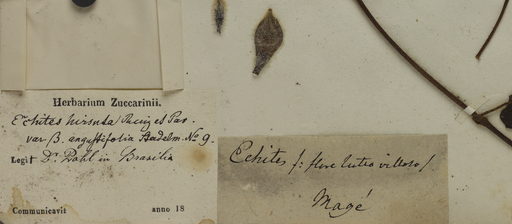 Herbarium Zuccarinii.
Echites hirsuta Ruiz et Pav.
var β. angustifolia Stadelm. No 9.
Legit Dr. Pohl in Brasilia
Communicavit anno 18
Echites /: flore luteo villoso /
Magé